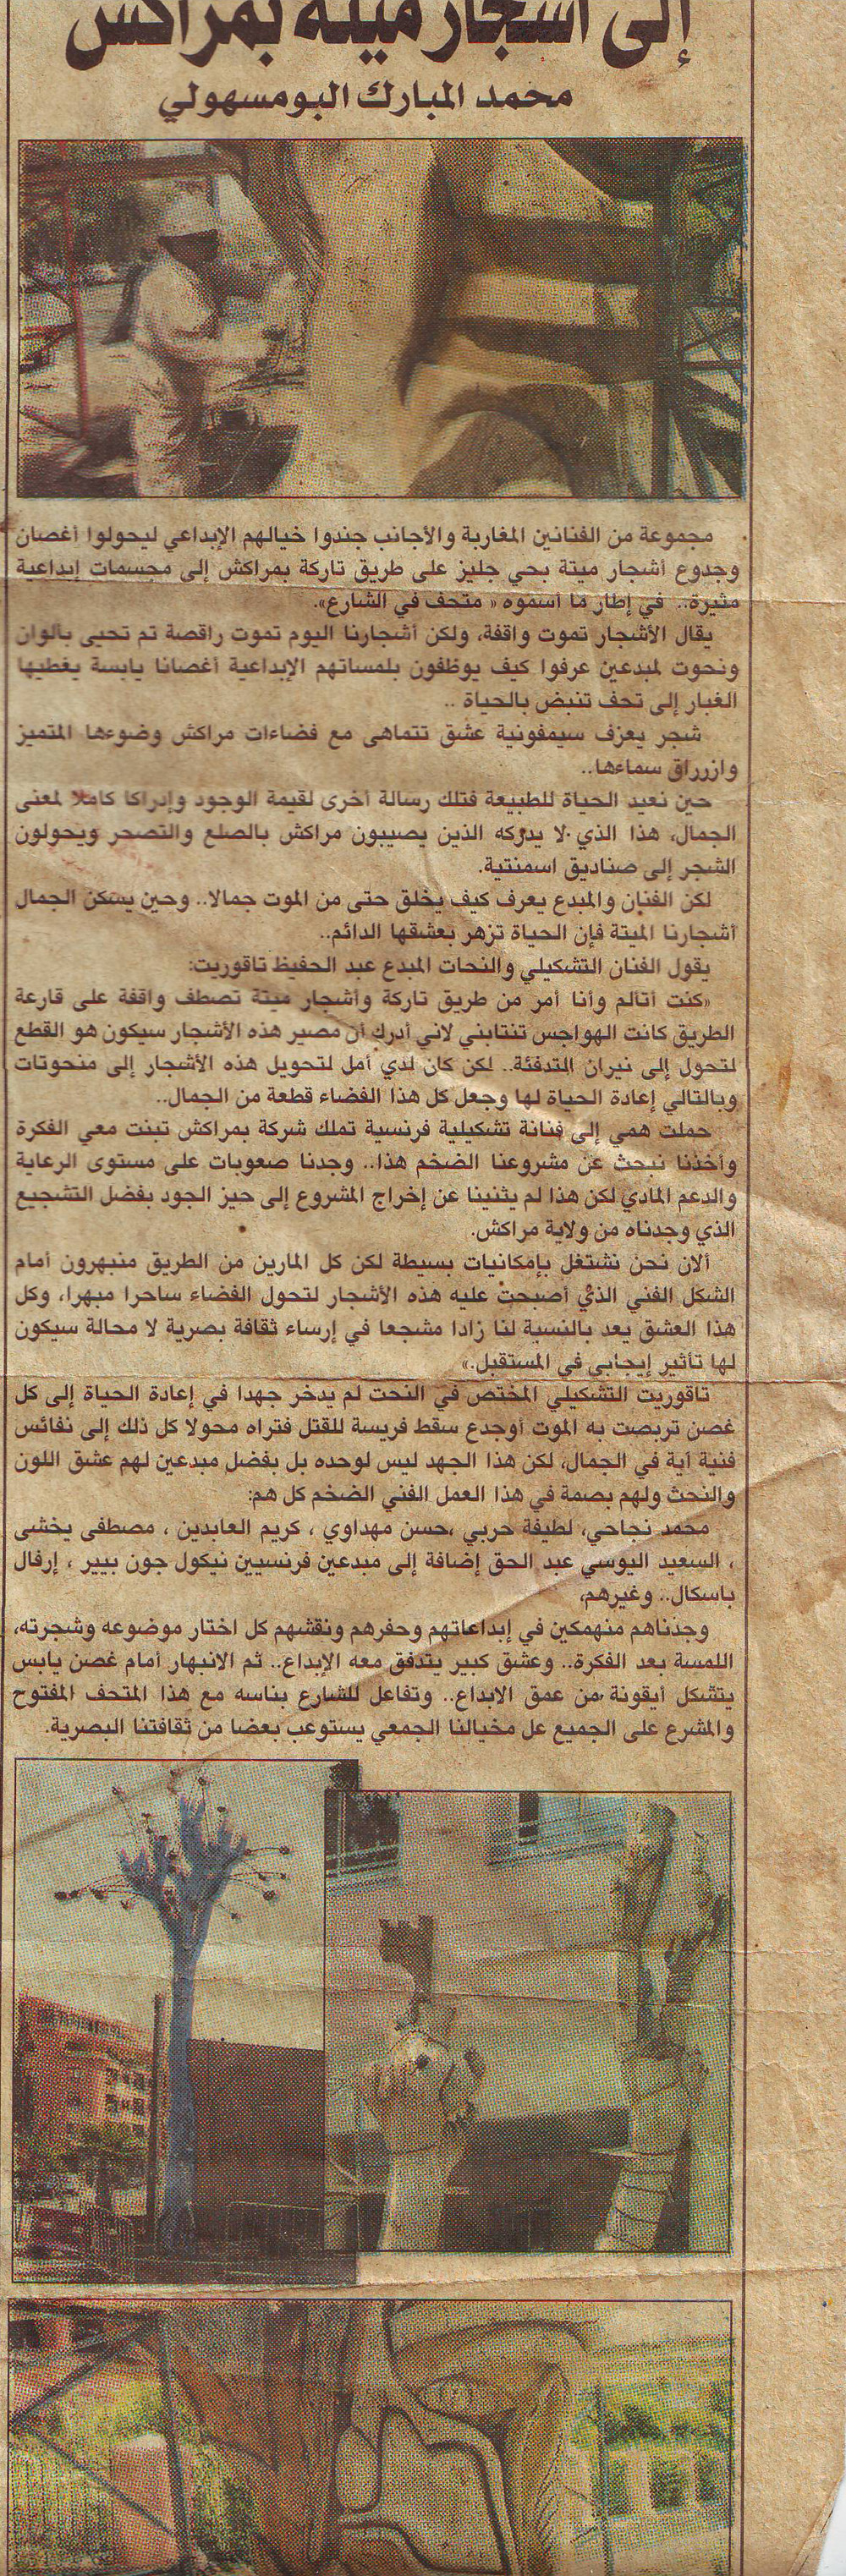 إلى أشجار ميتة بمراكش
محمد المبارك البومسهولي
مجموعة من الفنانين المغاربة والأجانب جندوا خيالهم الإبداعي ليحولوا أغصان
وجدوع أشجار ميتة بحي جليز على طريق تاركة بمراكش إلى مجسمات إبداعية
مثيرة.. في إطار ما أسموه « متحف في الشارع».
يقال الأشجار تموت واقفة، ولكن أشجارنا اليوم تموت راقصة ثم تحيى بألوان
ونحوت لمبدعين عرفوا كيف يوظفون بلمساتهم الإبداعية أغصانا يابسة يغطيها
الغبار إلى تحف تنبض بالحياة ..
شجر يعزف سيمفونية عشق تتماهى مع فضاءات مراكش وضوءها المتميز
وازرراق سماءها..
حين نعيد الحياة للطبيعة فتلك رسالة أخرى لقيمة الوجود وإدراكا كاملا لمعنى
الجمال، هذا الذي لا يدركه الذين يصيبون مراكش بالصلع والتصحر ويحولون
الشجر إلى صناديق اسمنتية.
لكن الفنان والمبدع يعرف كيف يخلق حتى من الموت جمالا.. وحين يسكن الجمال
أشجارنا الميتة فإن الحياة تزهر بعشقها الدائم..
يقول الفنان التشكيلي والنحات المبدع عبد الحفيظ تاقوريت:
«كنت أتألم وأنا أمر من طريق تاركة وأشجار ميتة تصطف واقفة على قارعة
الطريق كانت الهواجس تنتابني لاني أدرك أن مصير هذه الأشجار سيكون هو القطع
لتحول إلى نيران التدفئة.. لكن كان لدي أمل لتحويل هذه الأشجار إلى منحوتات
وبالتالي إعادة الحياة لها وجعل كل هذا الفضاء قطعة من الجمال..
حملت همي إلى فنانة تشكيلية فرنسية تملك شركة بمراكش تبنت معي الفكرة
وأخذنا نبحث عن مشروعنا الضخم هذا.. وجدنا صعوبات على مستوى الرعاية
والدعم المادي لكن هذا لم يثنينا عن إخراج المشروع إلى حيز الجود بفضل التشجيع
الذي وجدناه من ولاية مراكش.
ألان نحن نشتغل بإمكانيات بسيطة لكن كل المارين من الطريق منبهرون أمام
الشكل الفني الذي أصبحت عليه هذه الأشجار لتحول الفضاء ساحرا مبهرا، وكل
هذا العشق يعد بالنسبة لنا زادا مشجعا في إرساء ثقافة بصرية لا محالة سيكون
لها تأثير إيجابي في المستقبل.»
تاقوريت التشكيلي المختص في النحت لم يدخر جهدا في إعادة الحياة إلى كل
غصن تربصت به الموت أوجدع سقط فريسة للقتل فتراه محولا كل ذلك إلى نفائس
فنية أية في الجمال، لكن هذا الجهد ليس لوحده بل بفضل مبدعين لهم عشق اللون
والنحث ولهم بصمة في هذا العمل الفني الضخم كل هم:
محمد نجاحي، لطيفة حربي ،حسن مهداوي ، كريم العابدين ، مصطفى يخشى
، السعيد اليوسي عبد الحق إضافة إلى مبدعين فرنسيين نيكول جون بيير ، إرفال
باسكال.. وغيرهم،
وجدناهم منهمكين في إبداعاتهم وحفرهم ونقشهم كل اختار موضوعه وشجرته،
اللمسة بعد الفكرة.. وعشق كبير يتدفق معه الإبداع.. ثم الانبهار أمام غصن يابس
يتشكل أيقونة من عمق الابداع.. وتفاعل للشارع بناسه مع هذا المتحف المفتوح
والمشرع على الجميع عل مخيالنا الجمعي يستوعب بعضا من ثقافتنا البصرية.